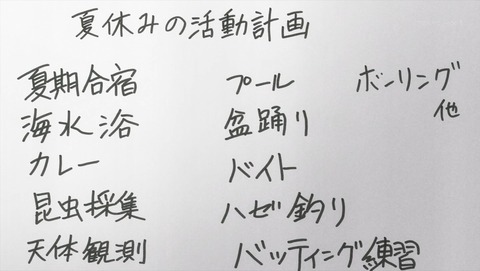 夏休みの活動計画
夏期合宿
海水浴
カレー
昆虫採集
天体観測
プール
盆踊り
バイト
ハゼ釣り
バッティング練習
ボーリング
他